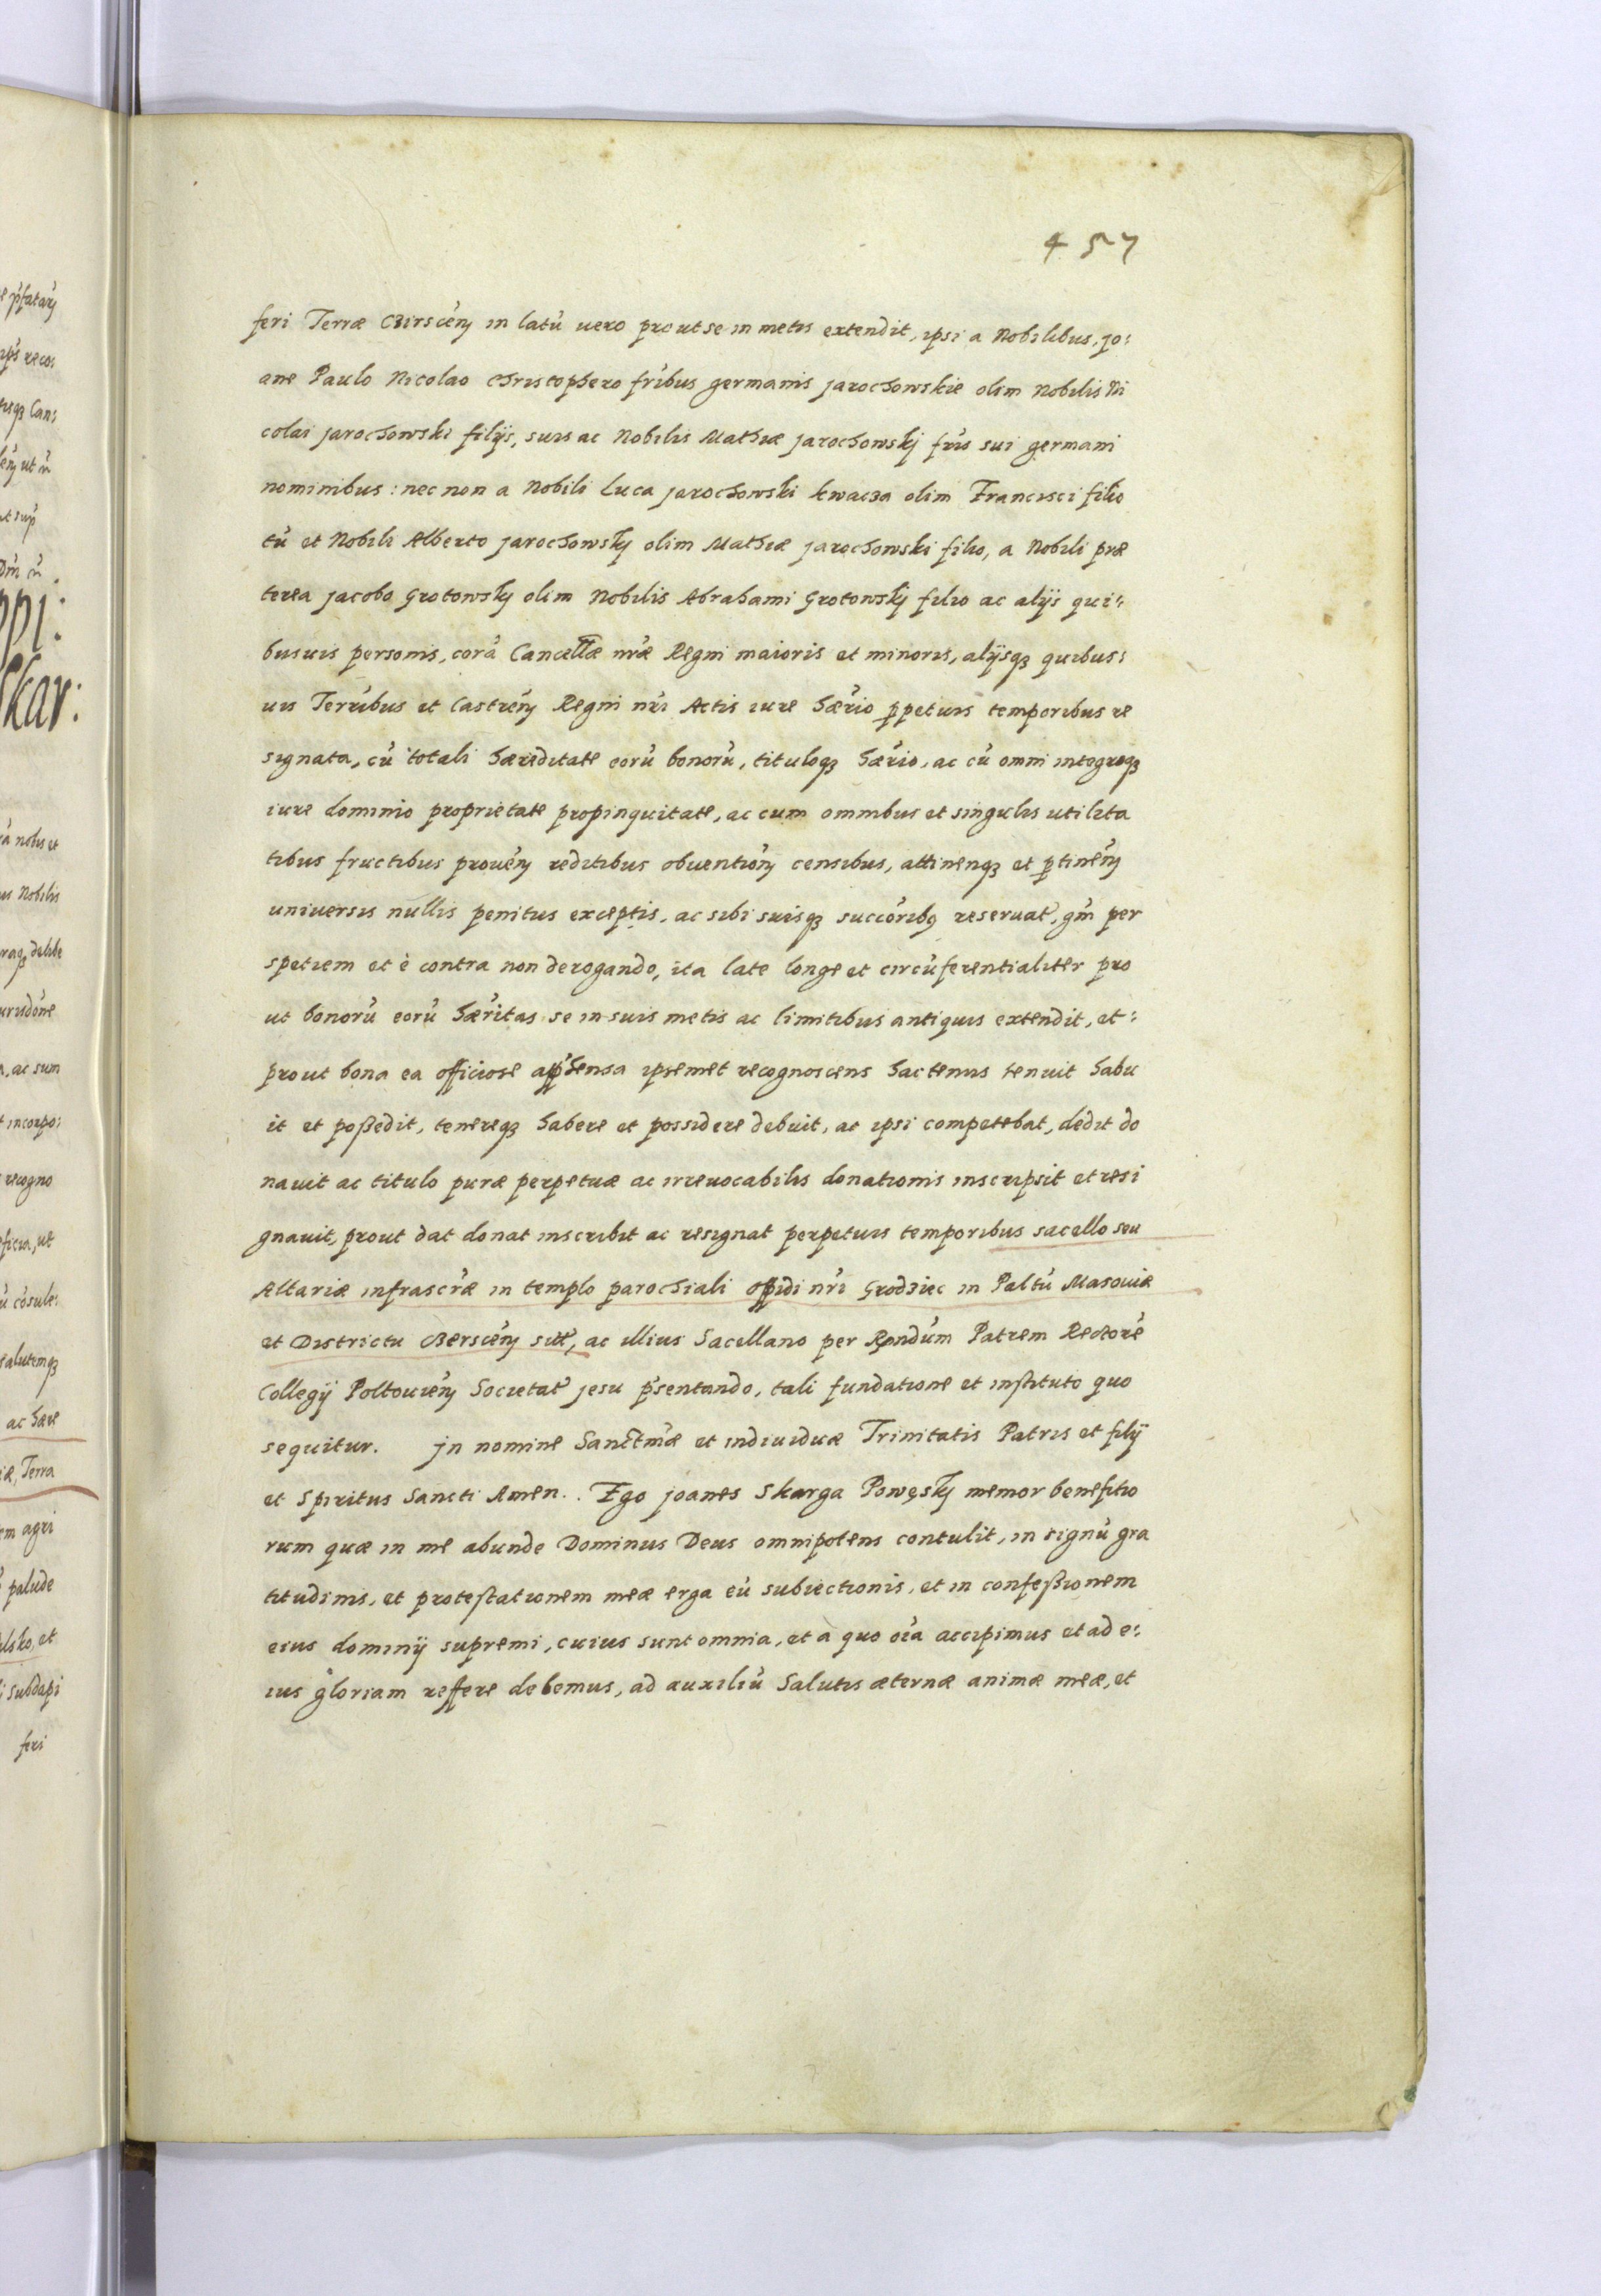 457
feri Terræ Czirscen̄ in latu᷃ uero prout se in metis extendit, ipsi a Nobilibus, jo:
ane Paulo Nicolao Christophero fribus germanis jarochowskie olim Nobilis Ni
colai jarochowski filijs, suis ac Nobilis Mathiæ jarochowskj fris sui germani
nominibus: nec non a Nobili Luca jarochowski kwacza olim Francisci filio
tū et Nobili Alberto jarochowskj olim Mathiæ jarochowski filio, a Nobili præ
terea jacobo Grotowskj olim Nobilis Abrahami Grotowskj filio ac alijs qui:
busuis personis, corā Cancellæ nræ Regni maioris et minoris, alijsqȝ quibus:
uis Terribus et Castren̄ Regni nri Actis iure hærio ꝑpetuis temporibus re
signata, cū totali hæreditate eorū bonorū, tituloqȝ hærio, ac cū omni integroqȝ
iure dominio proprietate propinquitate, ac cum omnibus et singulis utilita
tibus fructibus prouen̄ reditibus obuention̄ censibus, attinenqȝ et ꝑtinen̄
uniuersis nullis penitus exceptis, ac sibi suisqȝ succoribȝ reseruat, gm̄ per
spetiem et è contra non derogando, ita late longe et circūferentialiter pro
ut bonorū eorū hæritas se in suis metis ac limitibus antiquis extendit, et:
prout bona ea officiose apphensa ipsemet recognoscens hactenus tenuit habu
it et poßedit, tenereqȝ habere et possidere debuit, ac ipsi competebat, dedit do
nauit ac titulo puræ perpetuæ ac irreuocabilis donationis inscripsit et resi
gnauit, prout dat donat inscribit ac resignat perpetuis temporibus sacello seu
Altariæ infrascræ in templo parochiali oppidi nri Grodziec in Paltū Masouiæ
et Districtu Czerscen̄ sitt, ac illius Sacellano per Rndum Patrem Rectorē
Collegij Poltouien̄ Societat jesu psentando, tali fundatione et instituto quo
sequitur. jn nomine Sanctmæ et indiuiduæ Trinitatis Patris et filij
et Spiritus Sancti Amen.. Ego joanes Skarga Powęskj memor benefitio
rum quæ in me abunde Dominus Deus omnipotens contulit, in signū gra
titudinis, et protestationem meæ erga eū subiectionis, et in confeßionem
eius dominij supremi, cuius sunt omnia, et à quo oīa accipimus et ad e:
ius gloriam reffere debemus, ad auxiliū Salutis æternæ animæ meæ, et